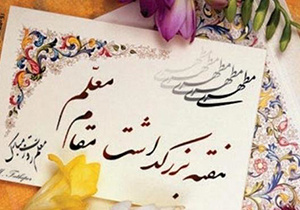 مطهری مطهری مطهری مطهری
هفته بزرگداشت مقام معلم
معلم روزت مبارک